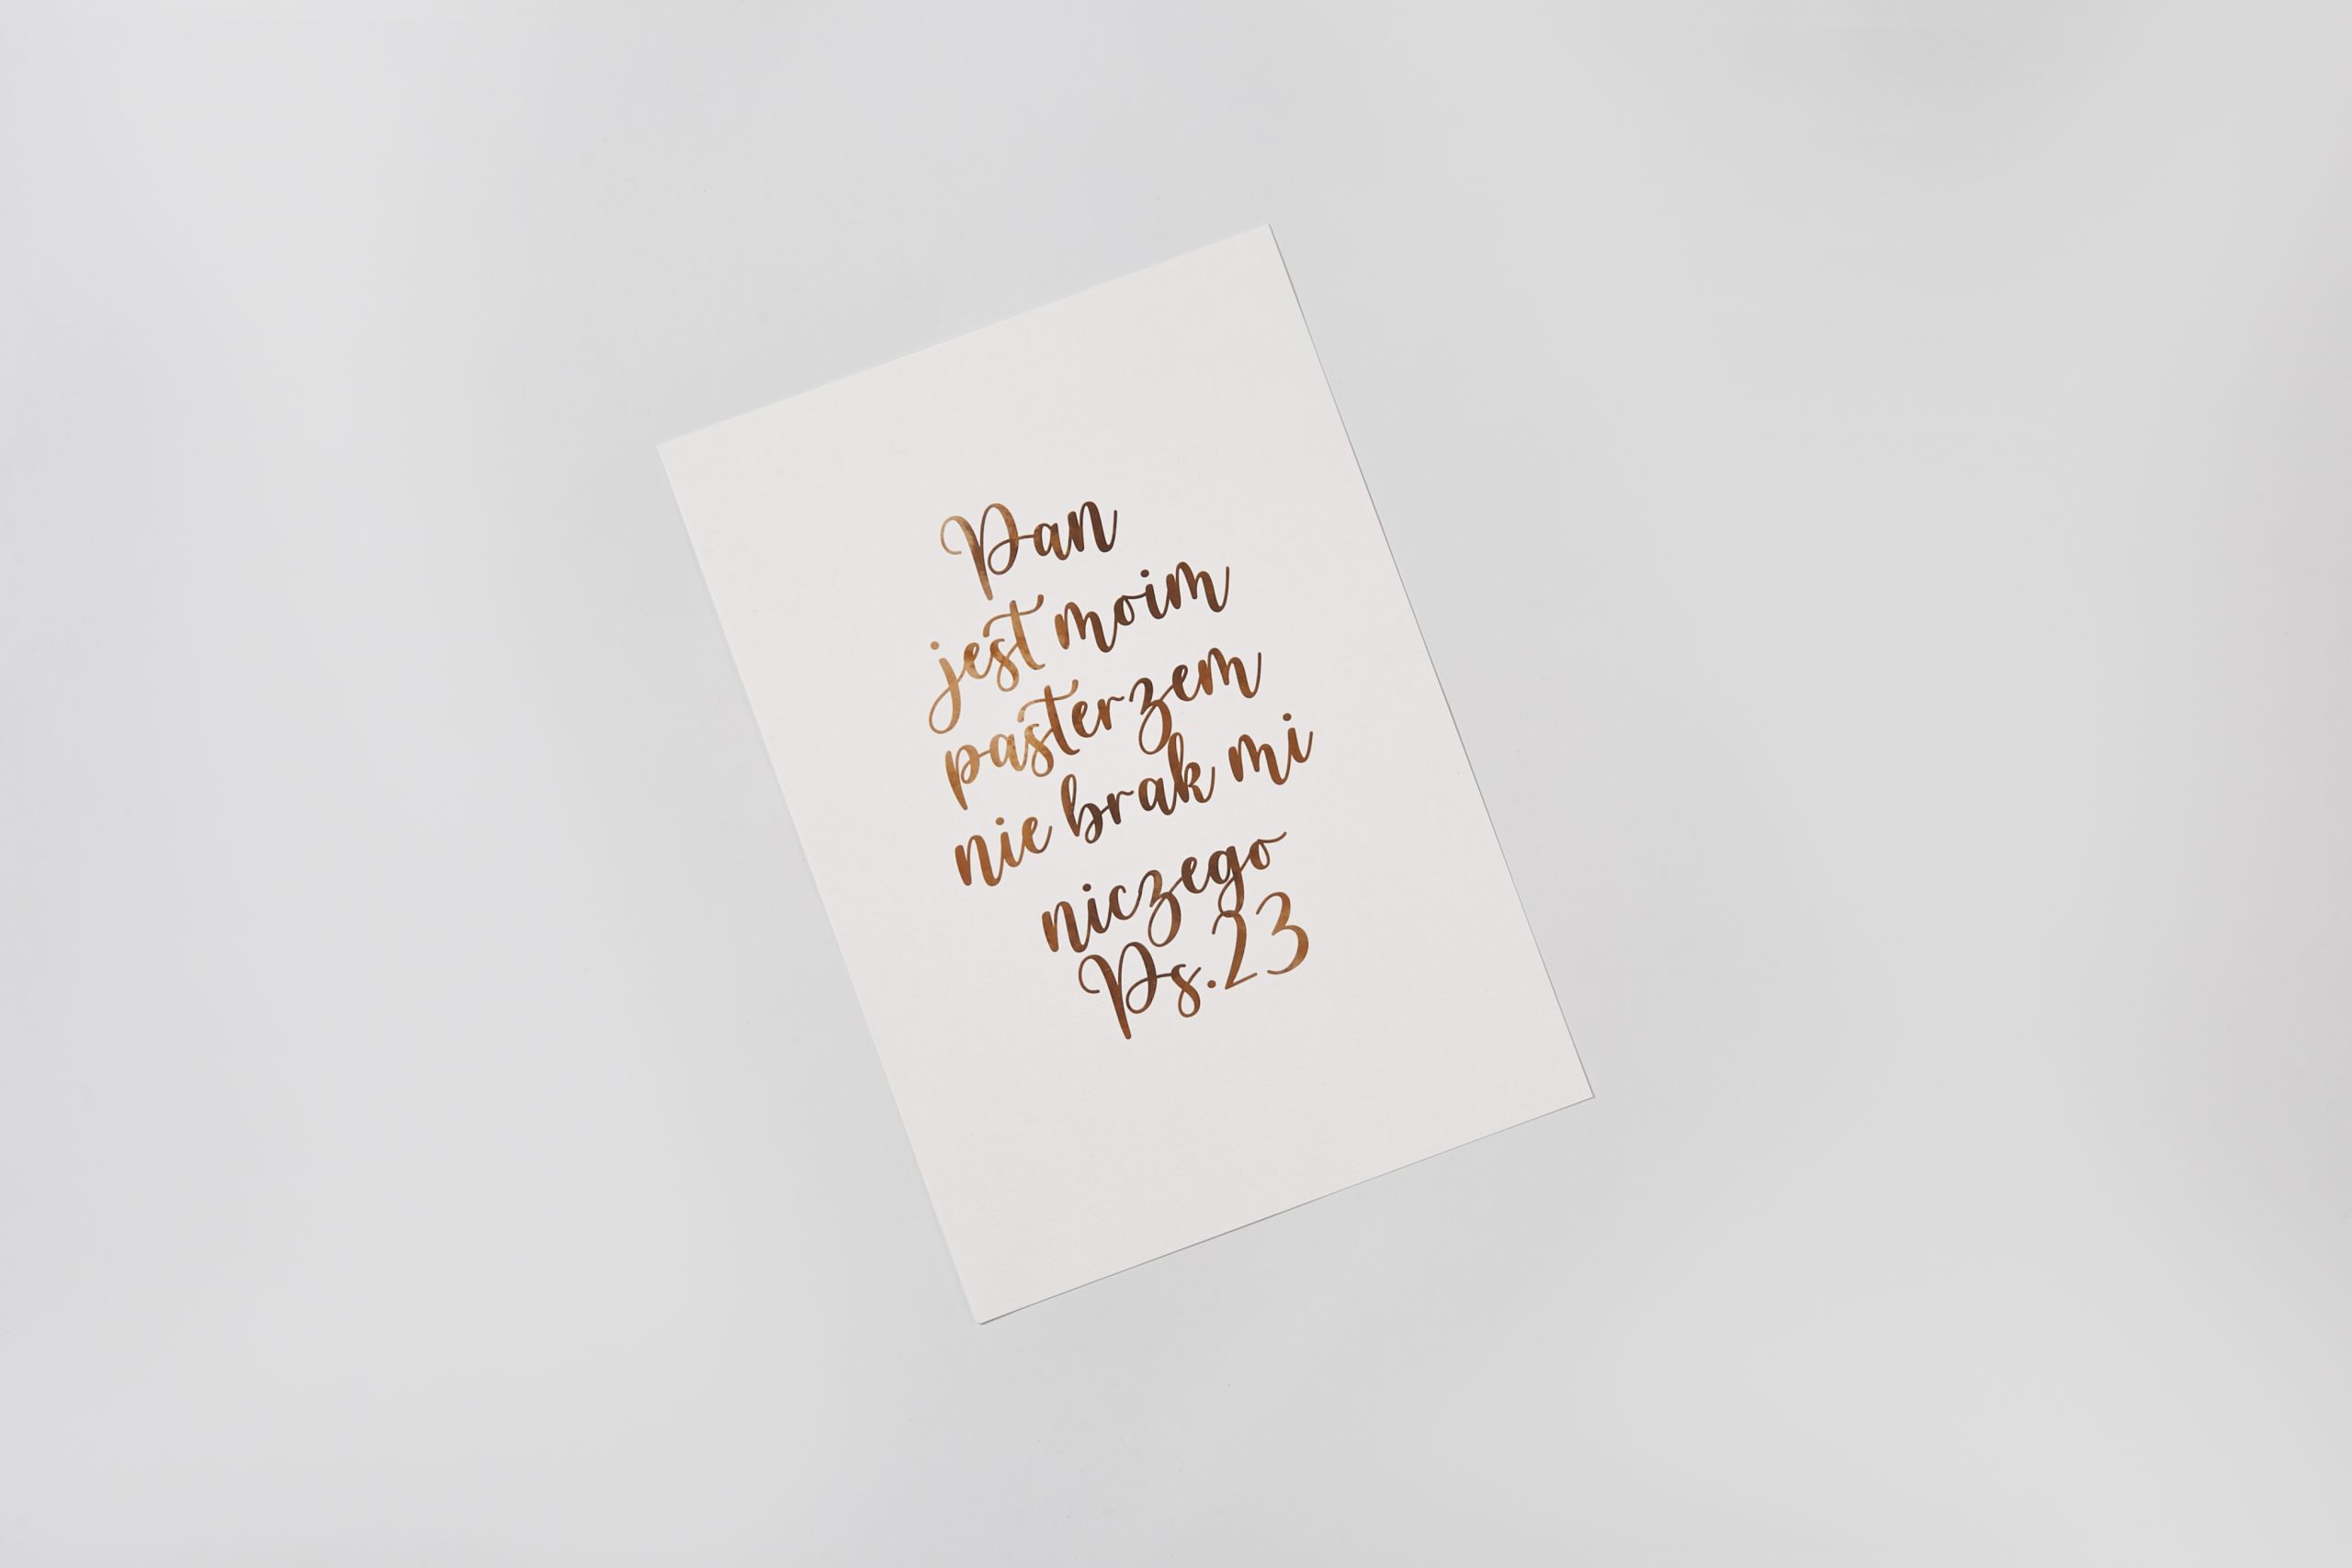 Pan
jest moim
pasterzem
nie brak mi
niczego
Ps.23